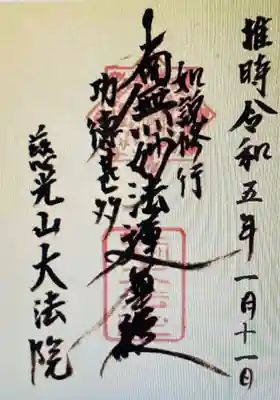 推時令和五年一月十一日
如説修行
南無妙法蓮華経
功徳甚多
慈光山大法院